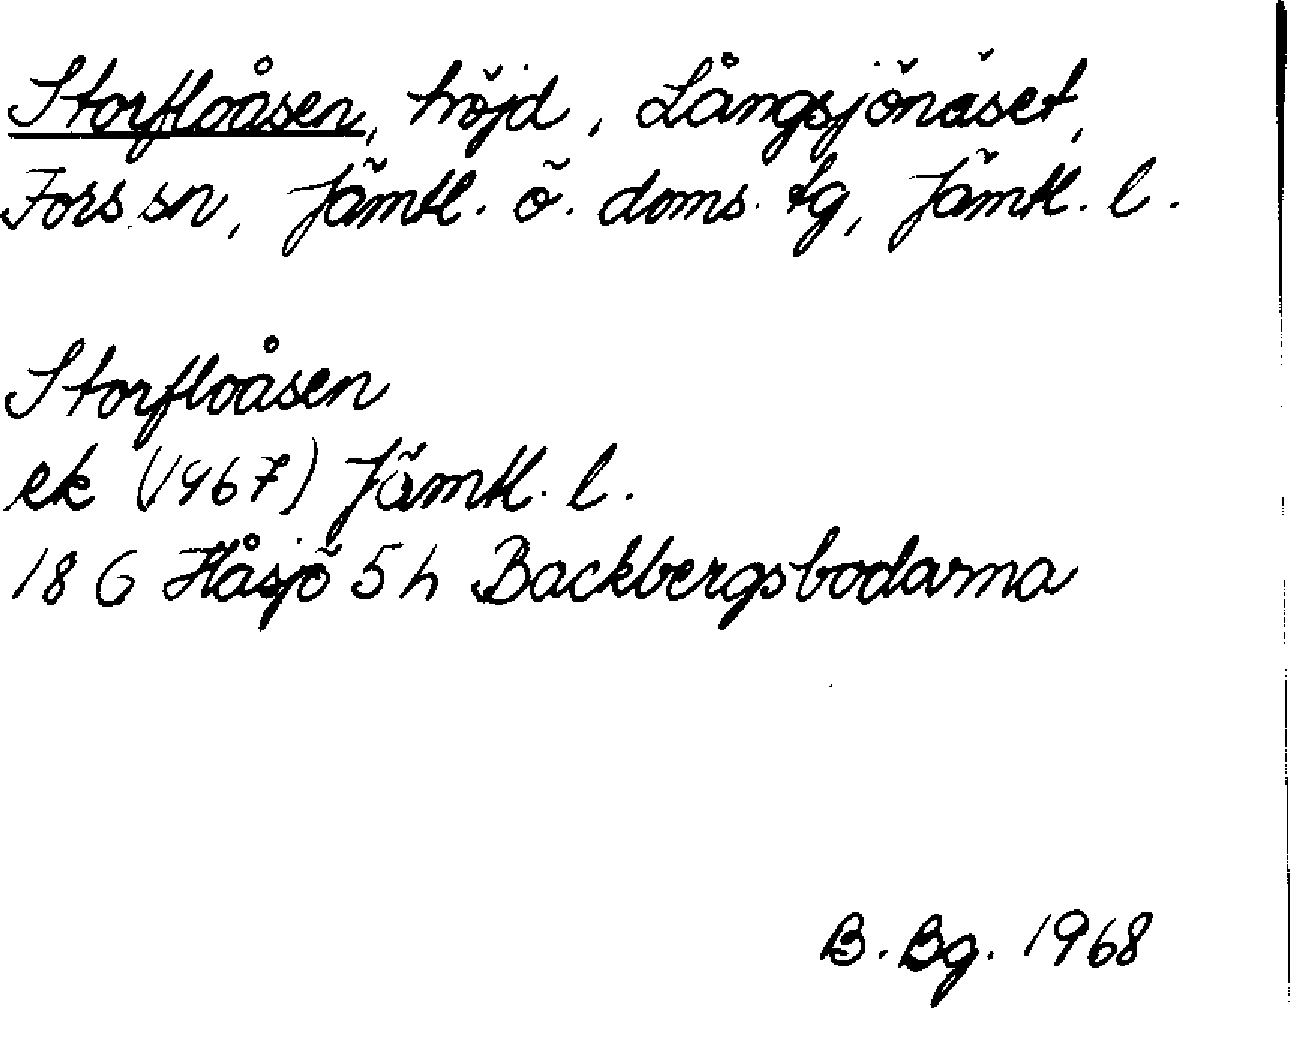 Storfloåsen, höjd, Långsjönäset,
Fors sn, Jämtl. ö. doms. tg, Jämtl. l.
Storfloåsen
ek (1967) Jämtl. l.
18 G Håsjö 5 h Backbergsbodarna
B. Bg. 1968